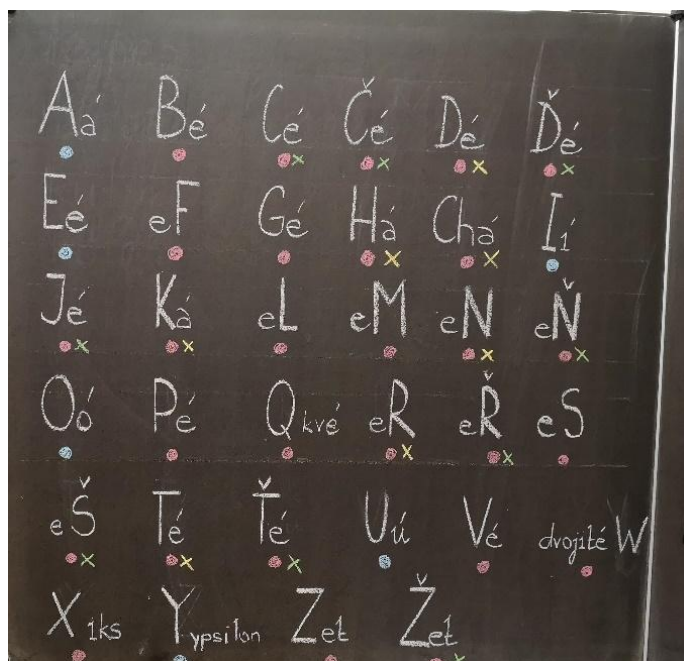 Aá Bé Cé Čé Dé Ďé
Eé eF Gé Há Chá Ií
Jé Ká eL eM eN eŇ
Oó Pé Qkvé eR eŘ eS
eŠ Té Ťé Uú Vé dvojitéW
Xiks Yypsilon Zet Žet